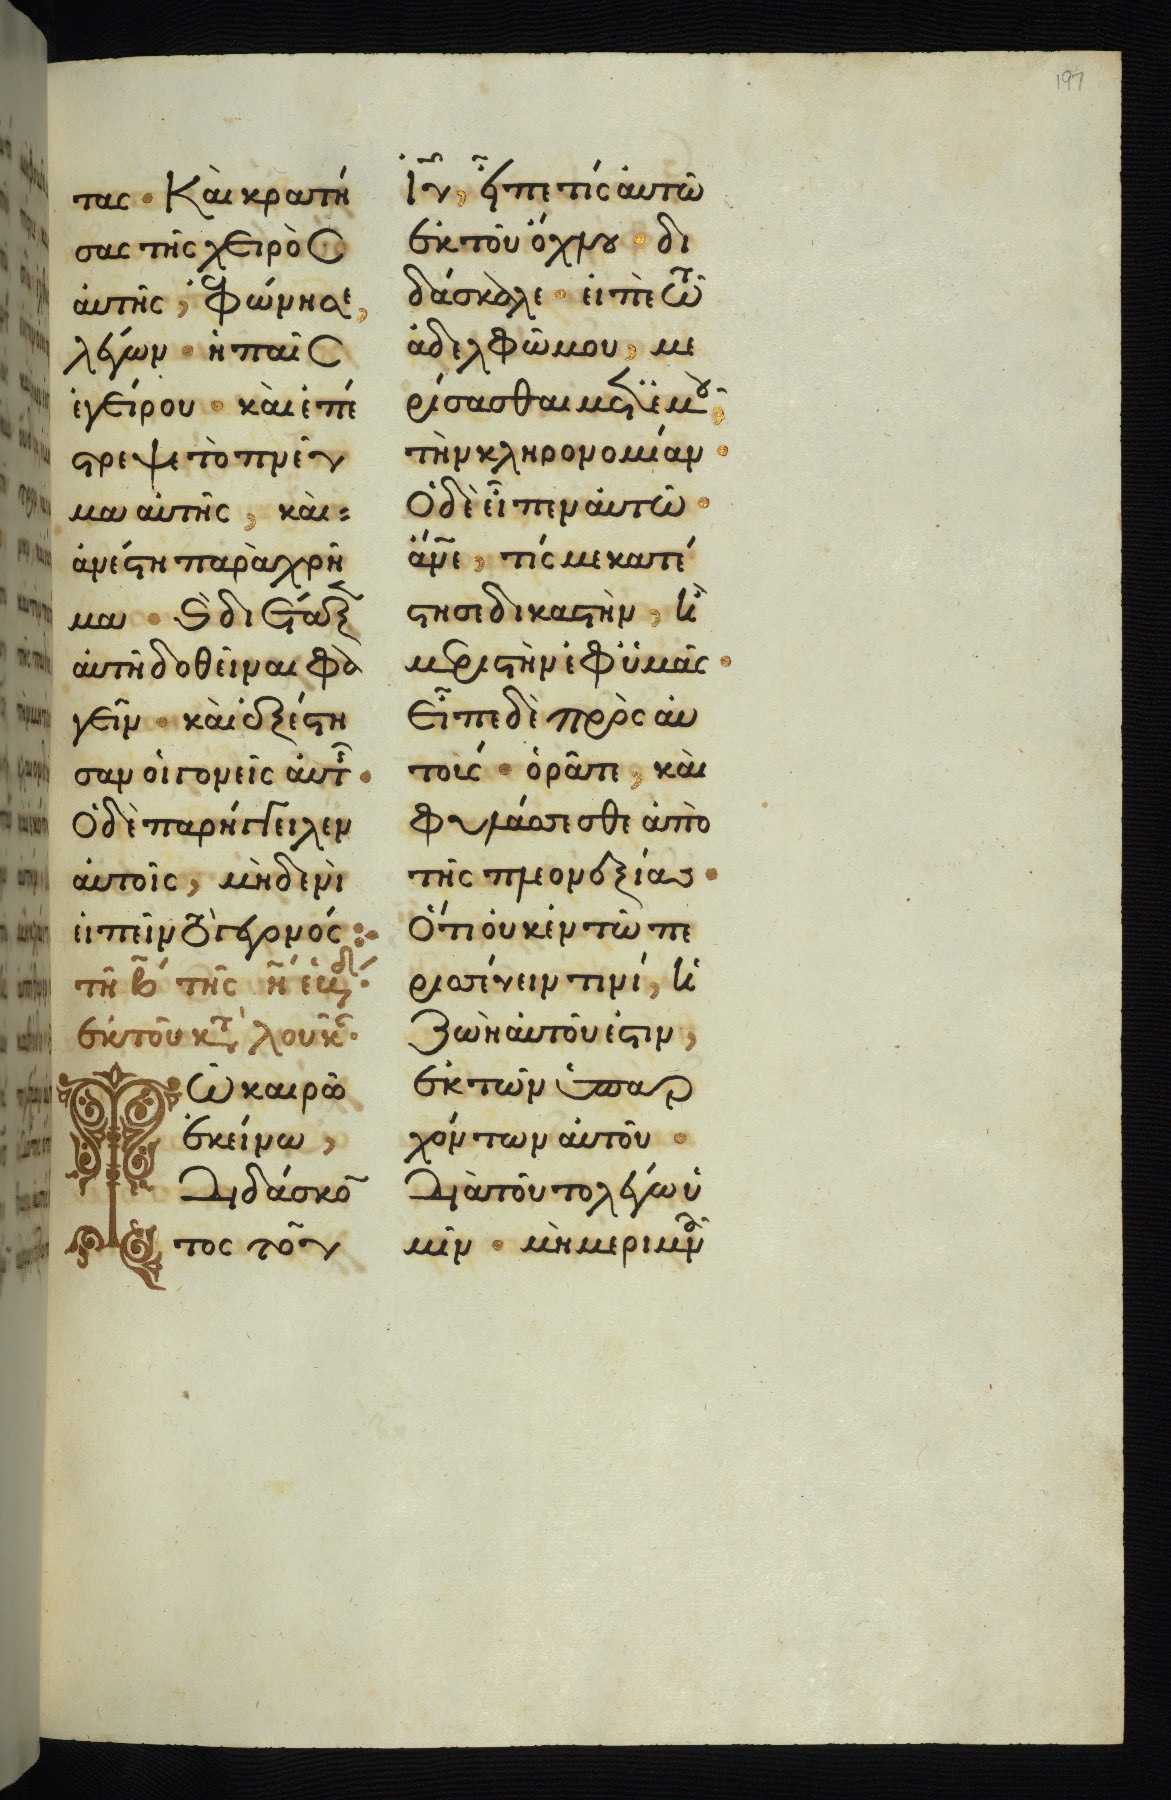 197
τας · Καὶ κρατή
σας τῆς χειρὸς
ἀυτῆς, ἐφώνησε,
λέγων · ἡ παῖς
ἐγείρου · καὶ ἐπέ
στρεψε τὸ πνεῦ
μα ἀυτῆς, καὶ
ἀνέστη παρὰχρῆ
μα · καὶ διέταξεν
ἀυτῆ δοθεῖναι φα
γεῖν · καὶ ἐξέστη
σαν ὁι γονεῖς ἀυτῆς ·
Ὁ δὲ παρήγγειλεν
ἀυτοῖς, μηδενὶ
ἐιπεῖν τὸ γεγονός :·
τῆ β´ τῆς η´ ἑβδ´ ·
ἐκ τοῦ κτ λουκ ·
Τῶ καιρῶ
ἐκείνω,
διδάσκον
τος τοῦ
ἰῦ, εἶπε τίς ἀυτῶ
ἐκ τοῦ ὄχλου · δι
δάσκαλε · ἐιπὲ τῶ
ἀδελφῶ μου, με
ρίσασθαι μετ' ἐμοῦ,
τὴν κληρονομίαν ·
Ὁ δὲ εἶπεν ἀυτῶ ·
ἄνε, τίς με κατέ
στησε δικαστὴν, ἢ
μεριστὴν ἐφ ὑμᾶς ·
Εἶπε δὲ πρὸς ἀυ
τοὺς · ὁρᾶτε, καὶ
φυλάσσεσθε ἀπὸ
τῆς πλεονεξίας ·
Ὅτι ὀυκ ἐν τῶ πε
ρισσεύειν τινὶ, ἡ
ζωὴ ἀυτοῦ ἐστιν,
ἐκ τῶν ὑπαρ
χόντων ἀυτοῦ ·
Διὰ τοῦτο λέγω ὑ
μῖν · μὴ μεριμν